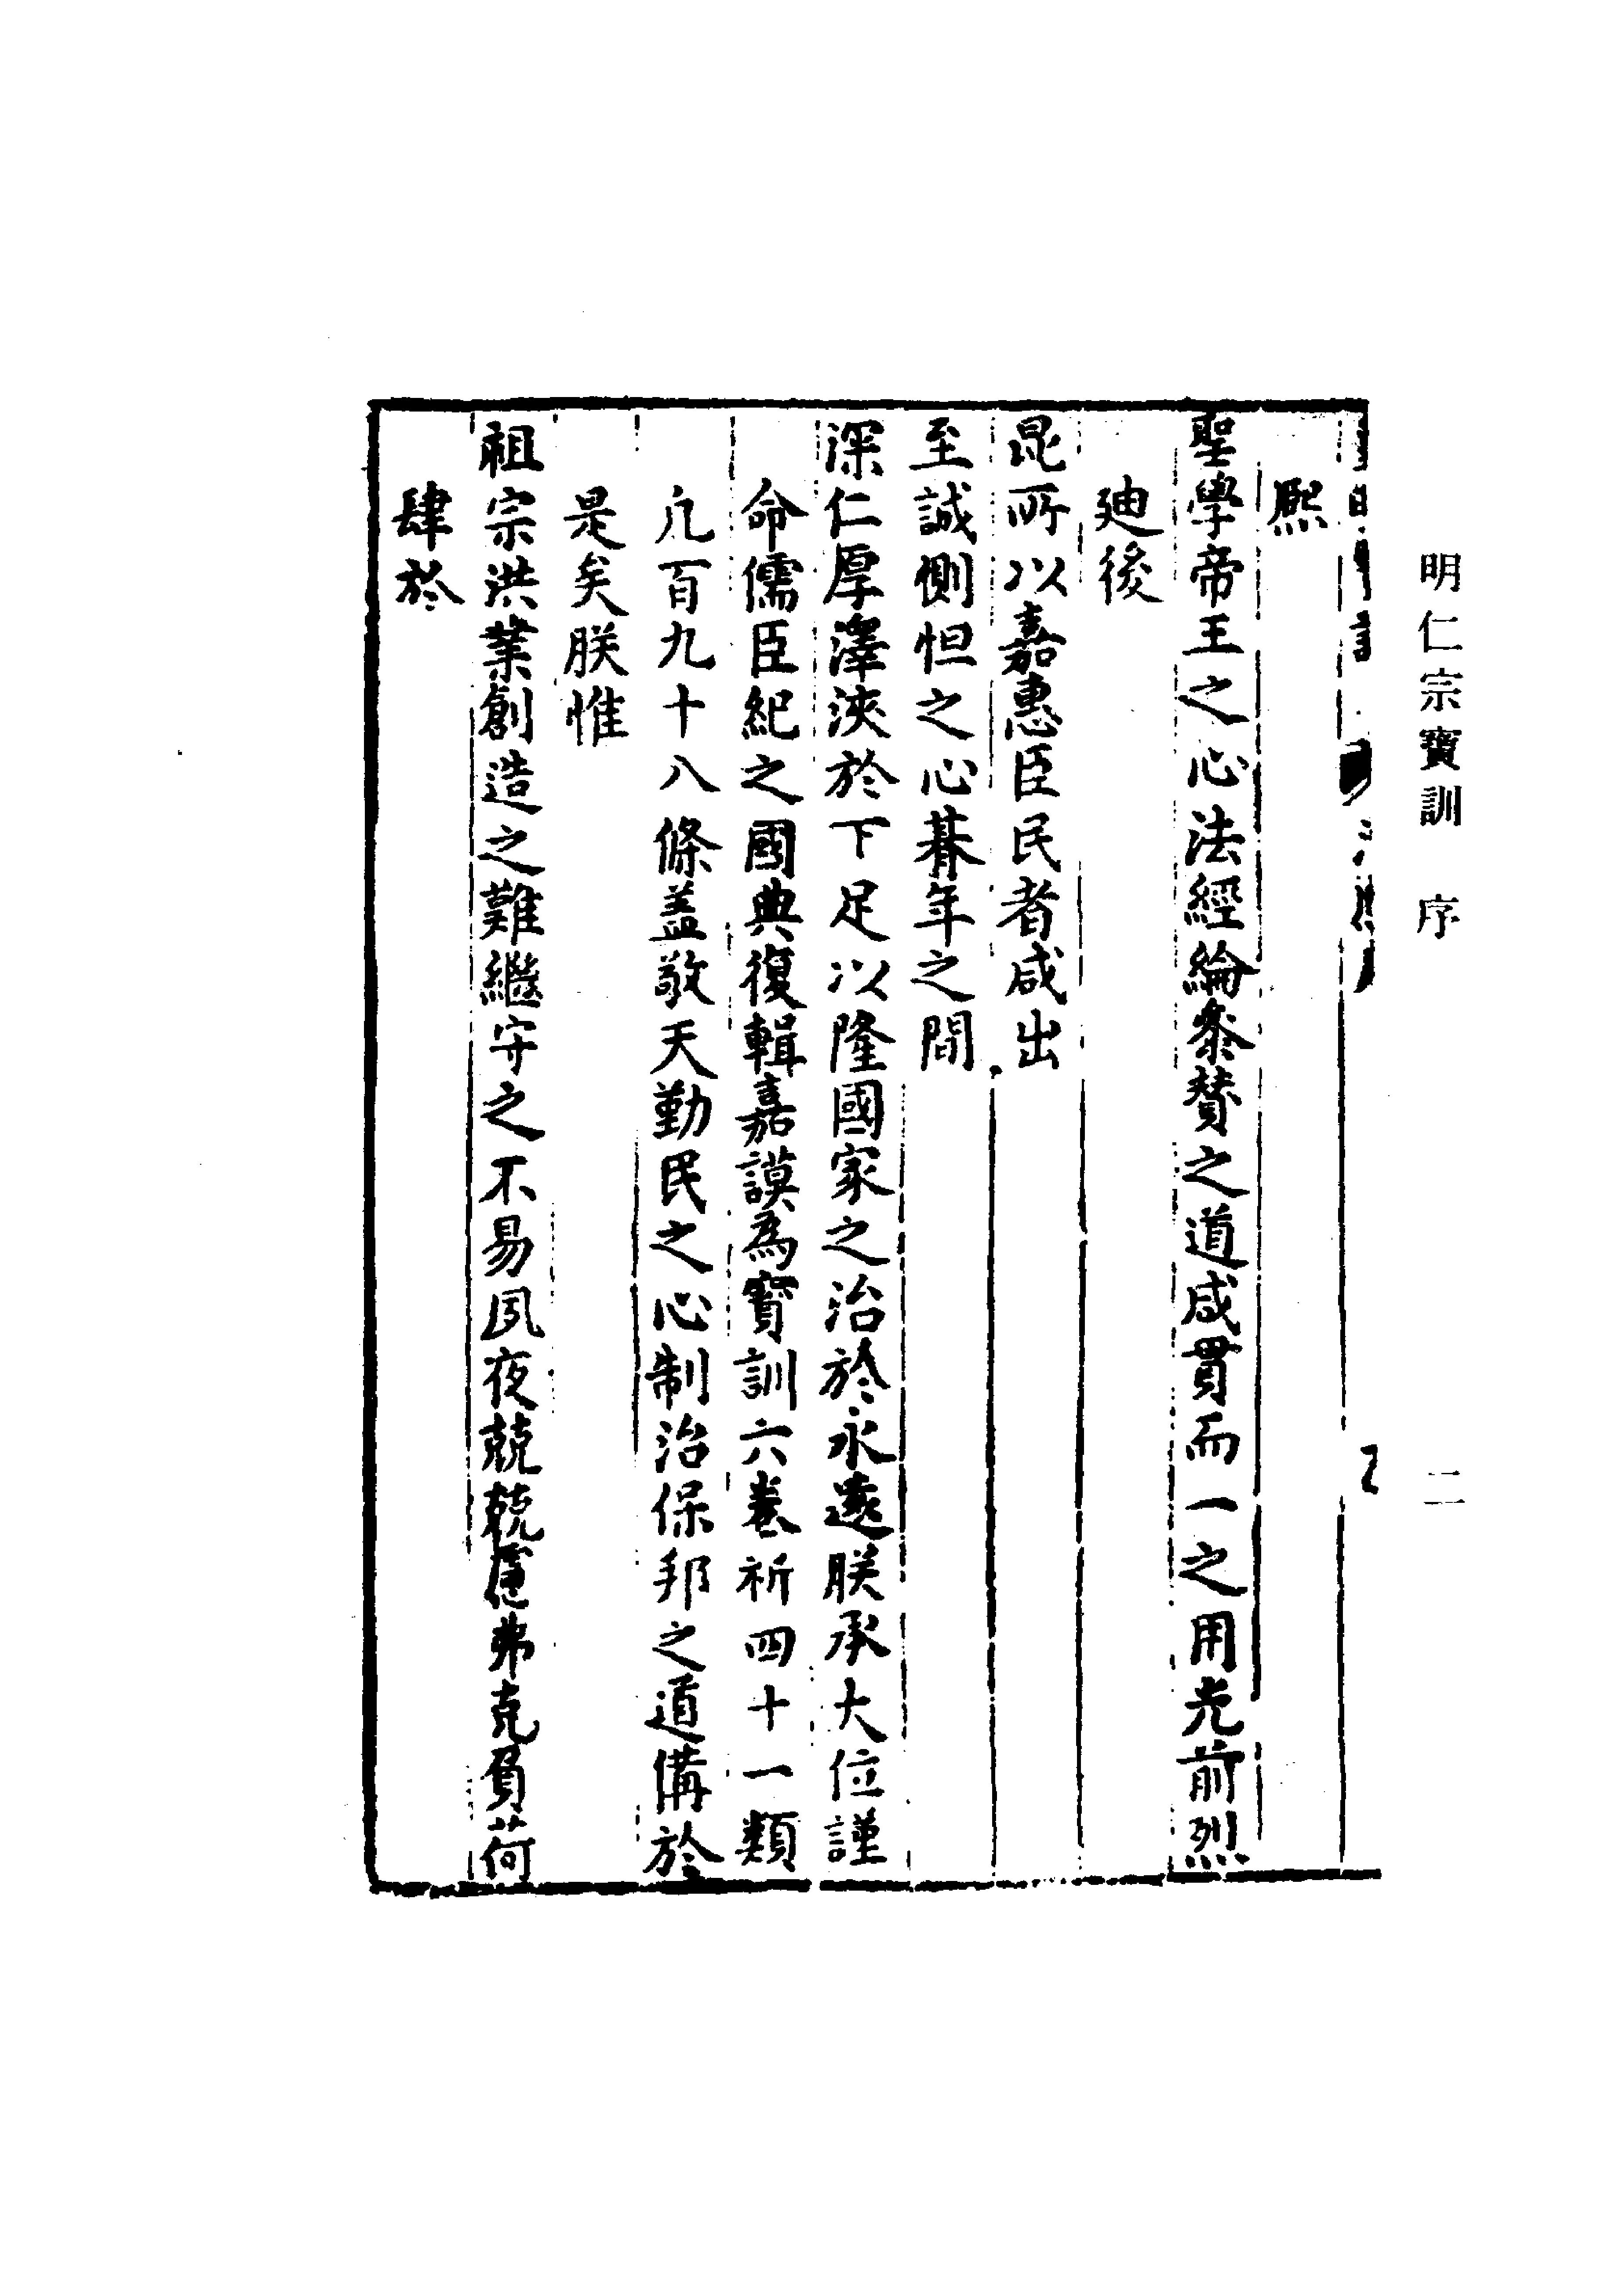 明仁宗寶訓　序　二
熙
聖學帝王之心法經綸叅贊之道咸貫而一之用光前烈
廸後
昆所以嘉惠臣民者咸出
至誠惻怛之心朞年之間
深仁厚澤浹於下足以隆國家之治於永遠朕承大位謹
命儒臣紀之國典復輯嘉謨為寳訓六卷析四十一類
凢百九十八條盖敬天勤民之心制治保邦之道備於
是矣朕惟
祖宗洪業創造之難繼守之不易夙夜兢兢慮弗克負荷
肆於